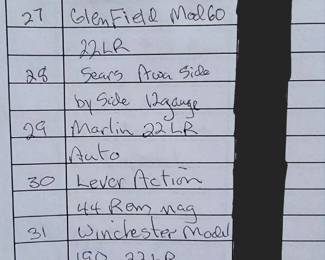 27 GlenField Mod 60
22LR
28 Sears Side
by Side 12gauge
29 Marlin 22 LR
Auto
30 Lever Action
44 Rem mag
31 Winchester Model
190 22 LR